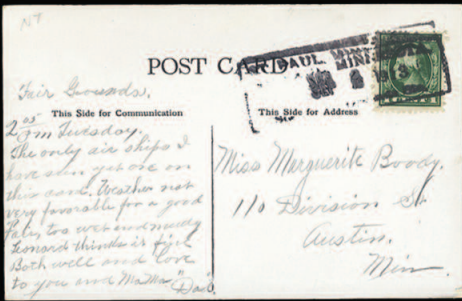 POST CARD
ST. PAUL, MINN.
MINN
1913
This Side for Communication
This Side for Address
Fair Grounds.
2 05 Pm Tuesday.
The only air ships I
have seen yet are on
this card. Weather not
very favorable for a good
Fair, too wet and muddy
Leonard thinks is fine
Both well and love
to you and MaMa "Dad"
Miss Marguerite Boody.
110 Division St
Austin.
Min